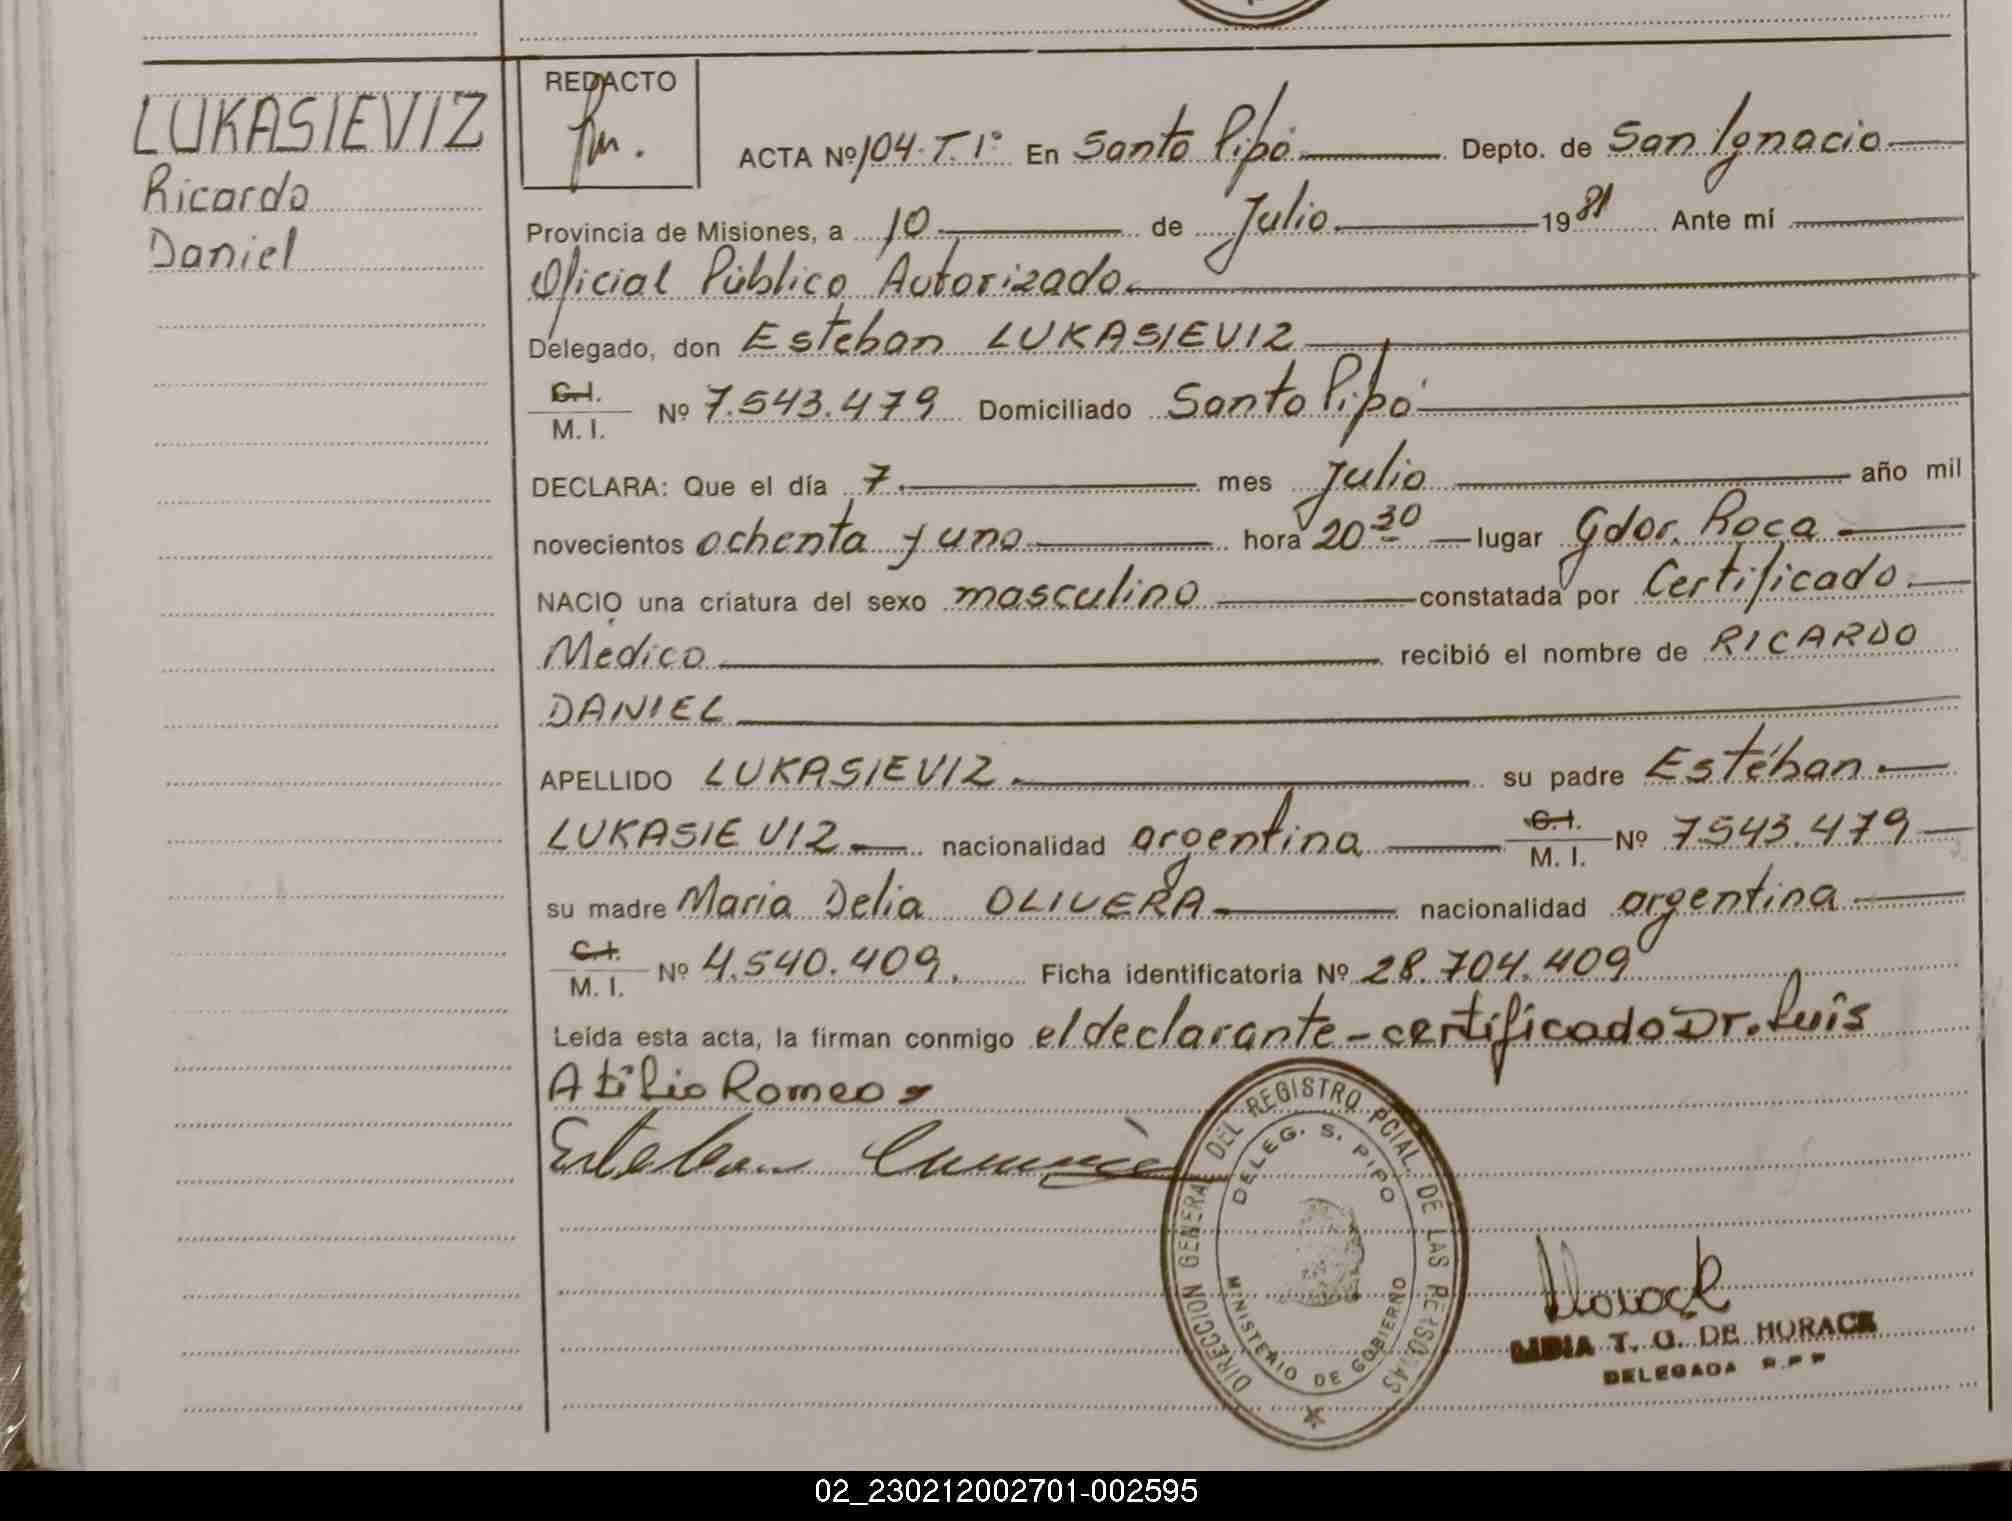 LUKASIEVIZ
Ricardo
Daniel
REDACTO
ACTA Nº 104. T. 1º En Santo Pipó Depto. de San Ignacio
Provincia de Misiones, a 10 de Julio 1981 Ante mí
Oficial Público Autorizado
Delegado, don Esteban LUKASIEVIZ
C.I.
M. I. Nº 7.543.479 Domiciliado Santo Pipó
DECLARA: Que el día 7 mes Julio año mil
novecientos ochenta y uno hora 20 30 lugar Gdor. Roca
NACIO una criatura del sexo masculino constatada por Certificado
Médico recibió el nombre de RICARDO
DANIEL
APELLIDO LUKASIEVIZ su padre Estéban
LUKASIEVIZ nacionalidad argentina C.I. M. I. Nº 7543.479
su madre Maria Delia OLIVERA nacionalidad argentina
C.I.
M. I. Nº 4.540.409. Ficha identificatoria Nº 28.704.409
Leída esta acta, la firman conmigo el declarante - certificado Dr. Luis
Atilio Romeo
Esteban
DIRECCION GENERAL DEL REGISTRO PCIAL. DE LAS PERSONAS
DELEG. S. PIPO
MINISTERIO DE GOBIERNO
Horack
LIDIA T. G. DE HORACK
DELEGADA R.P.P
02_230212002701-002595